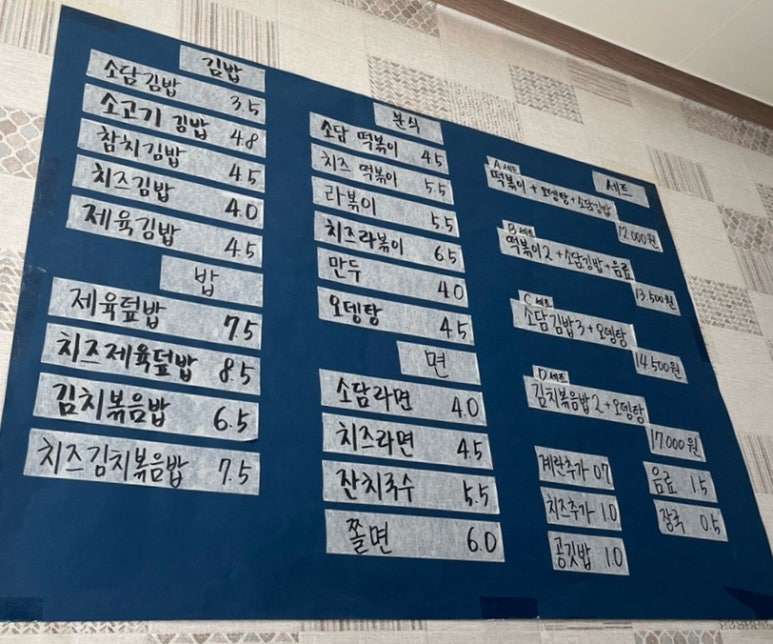 김밥
소담김밥 3.5
소고기 김밥 4.8
참치김밥 4.5
치즈김밥 4.0
제육김밥 4.5
밥
제육덮밥 7.5
치즈제육덮밥 8.5
김치볶음밥 6.5
치즈김치볶음밥 7.5
분식
소담 떡볶이 4.5
치즈 떡볶이 5.5
라볶이 5.5
치즈라볶이 6.5
만두 4.0
오뎅탕 4.5
면
소담라면 4.0
치즈라면 4.5
잔치국수 5.5
쫄면 6.0
세트
A 세트
떡볶이 + 오뎅탕 + 소담김밥
12.000원
B 세트
떡볶이2 + 소담김밥 + 음료
13.500원
C 세트
소담김밥3 + 오뎅탕
14.500원
D 세트
김치볶음밥2 + 오뎅탕
17.000원
계란추가 0.7
치즈추가 1.0
공깃밥 1.0
음료 1.5
장국 0.5